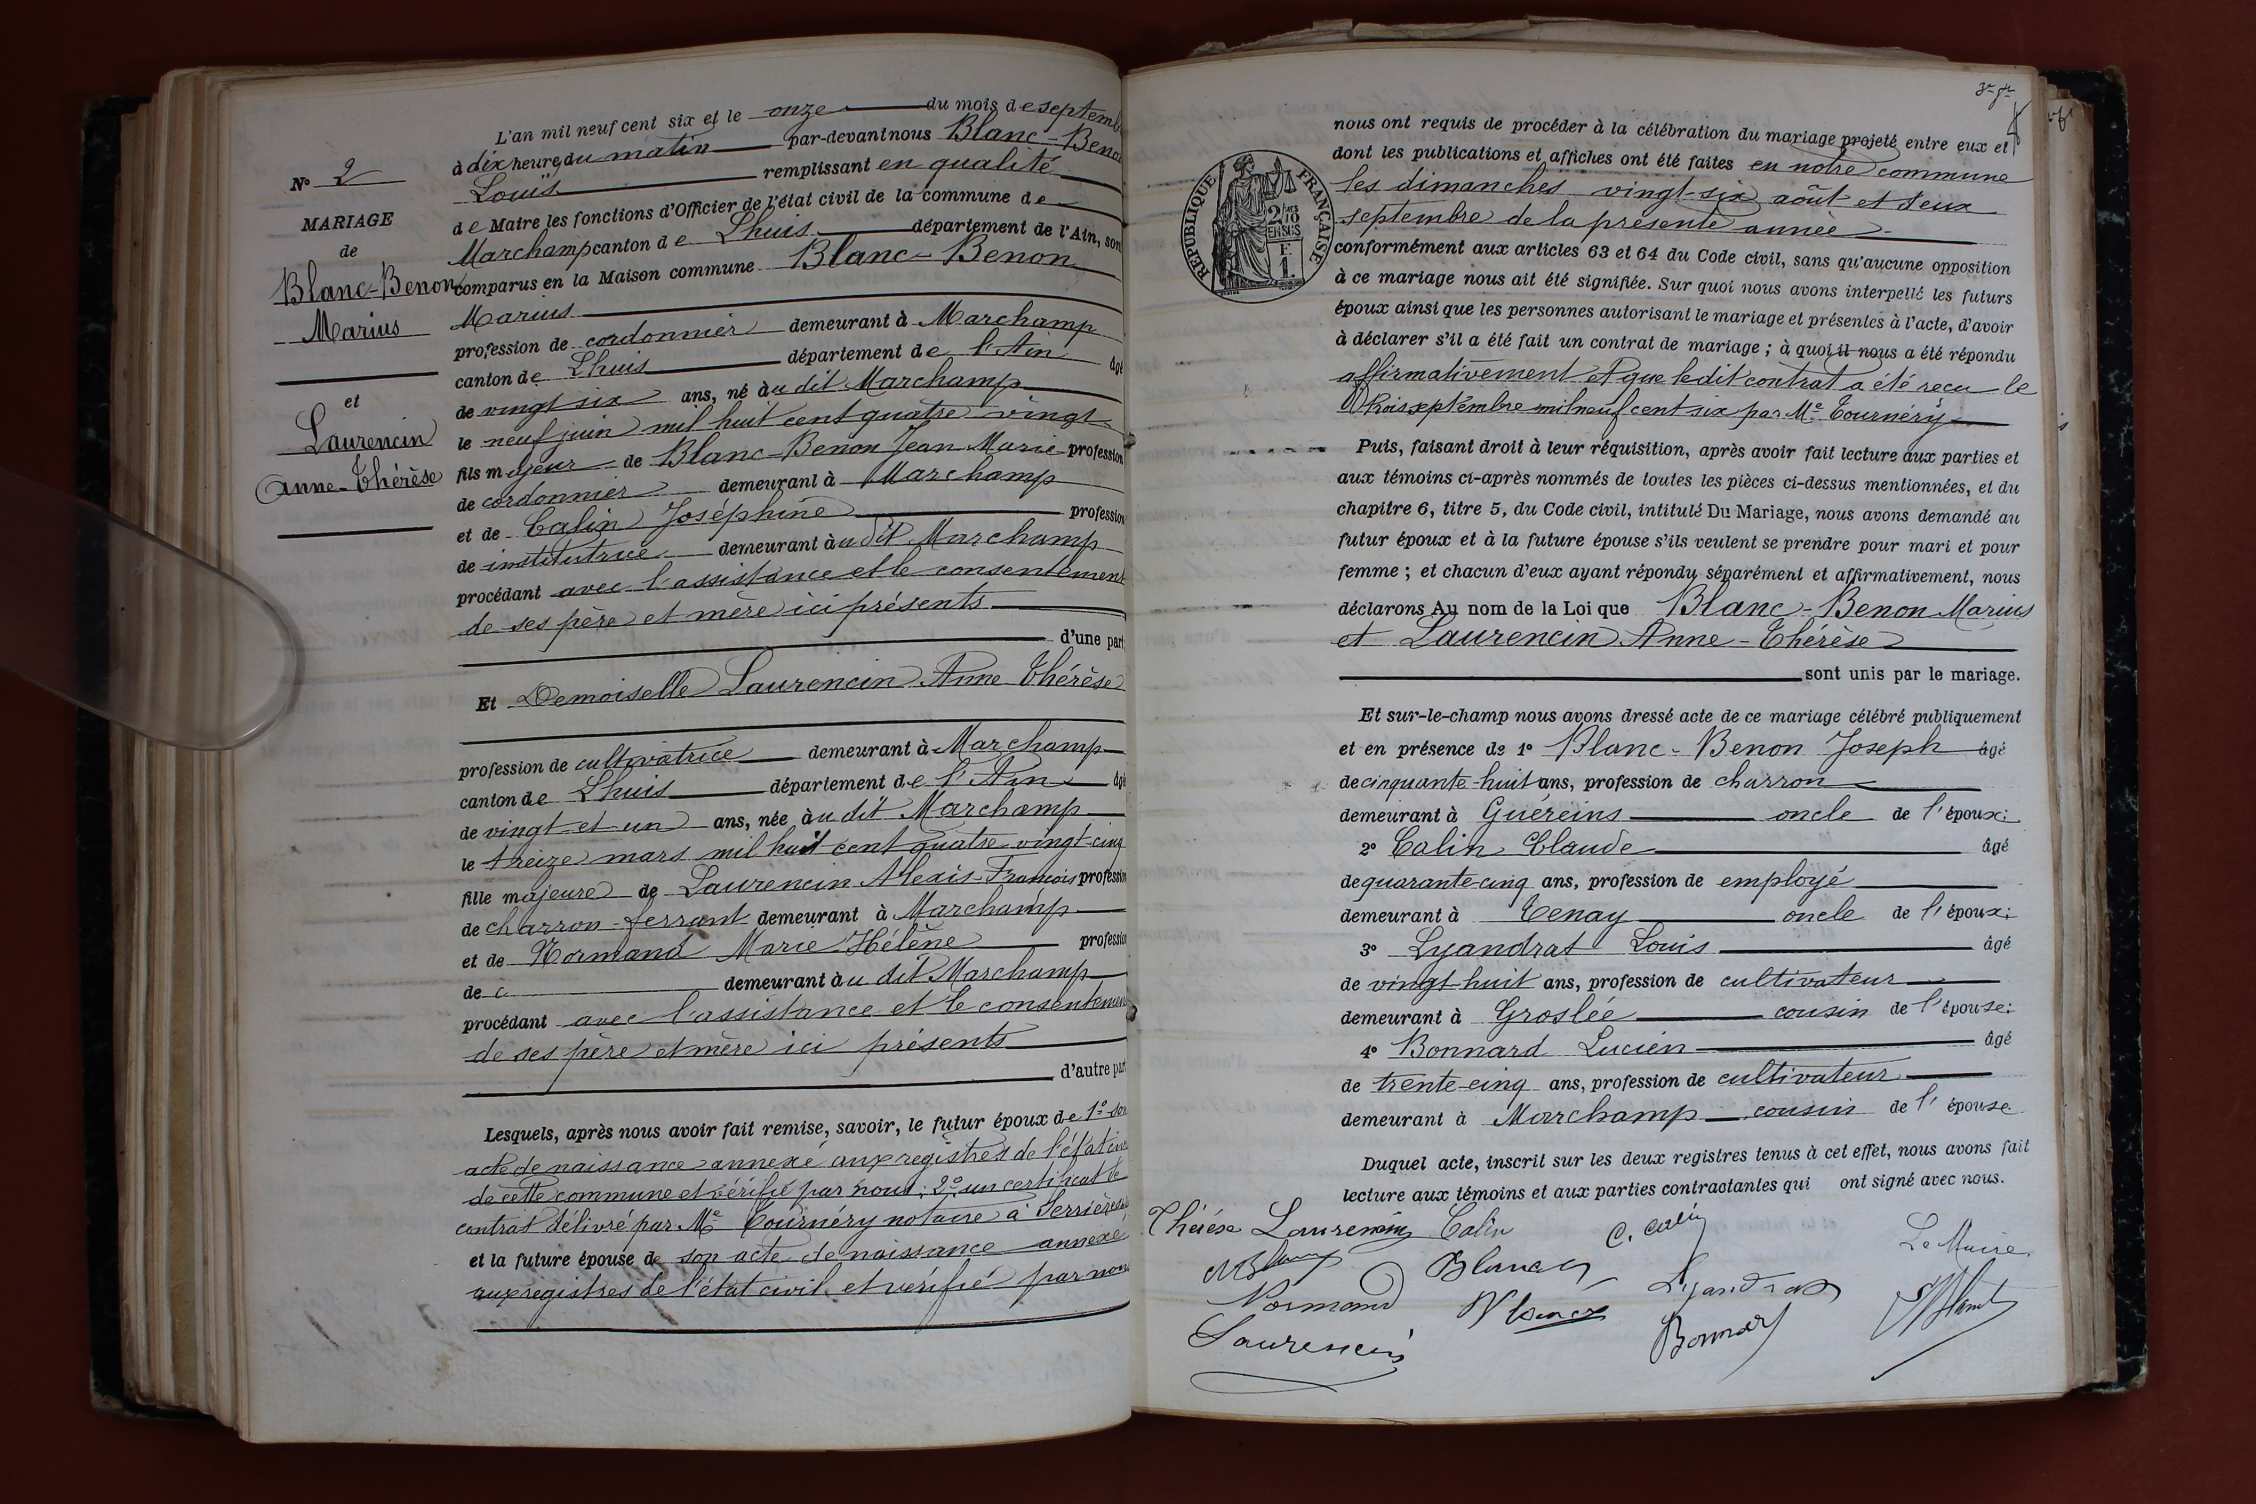 L'an mil neuf cent six et le onze du mois de septemb
à dix heures du matin par-devant nous Blanc-Beno
Louis remplissant en qualité
de Maire les fonctions d'Officier de l'état civil de la commune de
Marchamp canton de Lhuis département de l'Ain, son
comparus en la Maison commune Blanc-Benon
Marius
profession de cordonnier demeurant à Marchamp
canton de Lhuis département de l'Ain âgé
de vingt six ans, né àu dit Marchamp
le neuf juin mil huit cent quatre vingt
fils majeur de Blanc-Benon Jean Marie profession
de cordonnier demeurant à Marchamp
et de Calin Joséphine profession
de institutrice demeurant àu dit Marchamp
procédant avec l'assistance et le consentement
de ses père et mère ici présents
d'une part
Et Demoiselle Laurencin Anne Thérèse
profession de cultivatrice demeurant à Marchamp
canton de Lhuis département de l'Ain âgé
de vingt et un ans, née àu dit Marchamp
le treize mars mil huit cent quatre vingt-cinq
fille majeure de Laurencin Alexis-François profession
de charron-ferrant demeurant à Marchamp
et de Normand Marie Hélène profession
de demeurant àu dit Marchamp
procédant avec l'assistance et le consentement
de ses père et mère ici présents
d'autre part
Lesquels, après nous avoir fait remise, savoir, le futur époux de 1° son
acte de naissance annexé aux registres de l'état civi
de cette commune et vérifié par nous; 2° un certificat de
contrat délivré par Me Tournéry notaire à Serrières
et la future épouse de son acte de naissance annexé
aux registres de l'état civil et vérifié par nous
N° 2
MARIAGE
de
Blanc-Benon
Marius
et
Laurencin
Anne-Thérèse
RÉPUBLIQUE FRANÇAISE
2/10
EN SUS
F
1
nous ont requis de procéder à la célébration du mariage projeté entre eux et
dont les publications et affiches ont été faites en notre commune
les dimanches vingt-six août et deux
septembre de la présente année
conformément aux articles 63 et 64 du Code civil, sans qu'aucune opposition
à ce mariage nous ait été signifiée. Sur quoi nous avons interpellé les futurs
époux ainsi que les personnes autorisant le mariage et présentes à l'acte, d'avoir
à déclarer s'il a été fait un contrat de mariage ; à quoi il nous a été répondu
affirmativement et que ledit contrat a été reçu le
trois septembre mil neuf cent six par Me Tournéry
Puis, faisant droit à leur réquisition, après avoir fait lecture aux parties et
aux témoins ci-après nommés de toutes les pièces ci-dessus mentionnées, et du
chapitre 6, titre 5, du Code civil, intitulé Du Mariage, nous avons demandé au
futur époux et à la future épouse s'ils veulent se prendre pour mari et pour
femme ; et chacun d'eux ayant répondu séparément et affirmativement, nous
déclarons Au nom de la Loi que Blanc-Benon Marius
et Laurencin Anne-Thérèse
sont unis par le mariage.
Et sur-le-champ nous avons dressé acte de ce mariage célébré publiquement
et en présence de 1° Blanc-Benon Joseph âgé
de cinquante-huit ans, profession de charron
demeurant à Guéreins oncle de l'époux;
2° Calin Claude âgé
de quarante-cinq ans, profession de employé
demeurant à Tenay oncle de l'époux;
3° Lyandrat Louis âgé
de vingt-huit ans, profession de cultivateur
demeurant à Groslée cousin de l'épouse;
4° Bonnard Lucien âgé
de trente-cinq ans, profession de cultivateur
demeurant à Marchamp cousin de l'épouse
Duquel acte, inscrit sur les deux registres tenus à cet effet, nous avons fait
lecture aux témoins et aux parties contractantes qui ont signé avec nous.
Thérèse Laurencin Calin C. Calin
Le Maire
MBlanc Blanc Lyandrat
Normand Blanc
Laurencin Bonnard